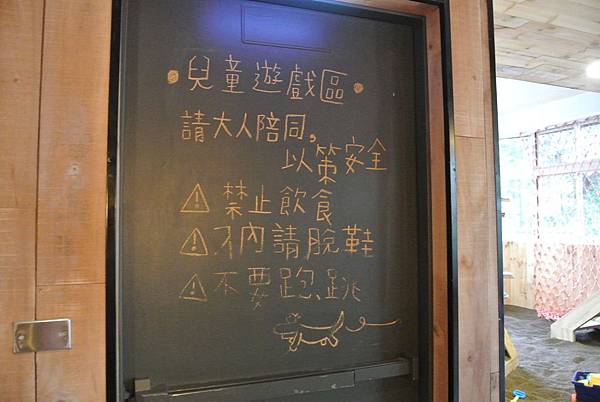 •兒童遊戲區•
請大人陪同,
以策安全
⚠禁止飲食
⚠內請脫鞋
⚠不要跑、跳